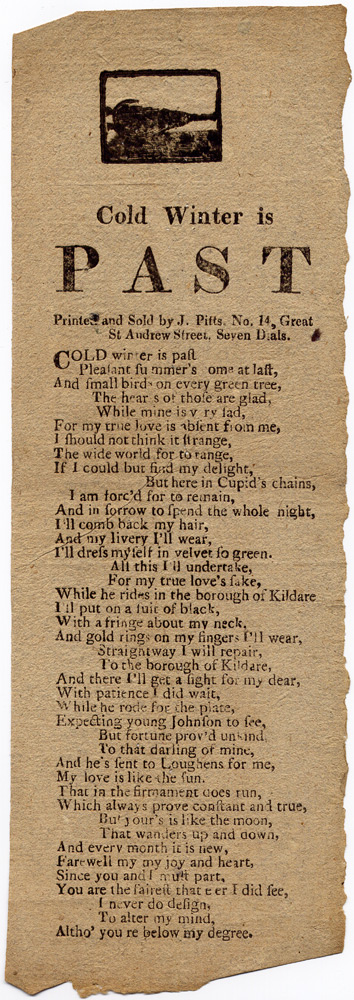 Cold Winter is
PAST
Printed and Sold by J. Pitts, No. 14, Great
St Andrew Street, Seven Dials.
COLD winter is paſt
Pleaſant ſummer's come at laſt,
And ſmall birds on every green tree,
The hearts of thoſe are glad,
While mine is very ſad,
For my true love is abſent from me,
I ſhould not think it ſtrange,
The wide world for to range,
If I could but find my delight,
But here in Cupid's chains,
I am forc'd for to remain,
And in ſorrow to ſpend the whole night,
I'll comb back my hair,
And my livery I'll wear,
I'll dreſs myſelf in velvet ſo green.
All this I'll undertake,
For my true love's ſake,
While he rides in the borough of Kildare
I'll put on a ſuit of black,
With a fringe about my neck,
And gold rings on my fingers I'll wear,
Straightway I will repair,
To the borough of Kildare,
And there I'll get a ſight for my dear,
With patience I did wait,
While he rode for the plate,
Expecting young Johnſon to ſee,
But fortune prov'd unkind
To that darling of mine,
And he's ſent to Loughens for me,
My love is like the ſun.
That in the firmament does run,
Which always prove conſtant and true,
But your's is like the moon,
That wanders up and down,
And every month it is new,
Farewell my my joy and heart,
Since you and I muſt part,
You are the faireſt that e er I did ſee,
I never do deſign,
To alter my mind,
Altho' you re below my degree.